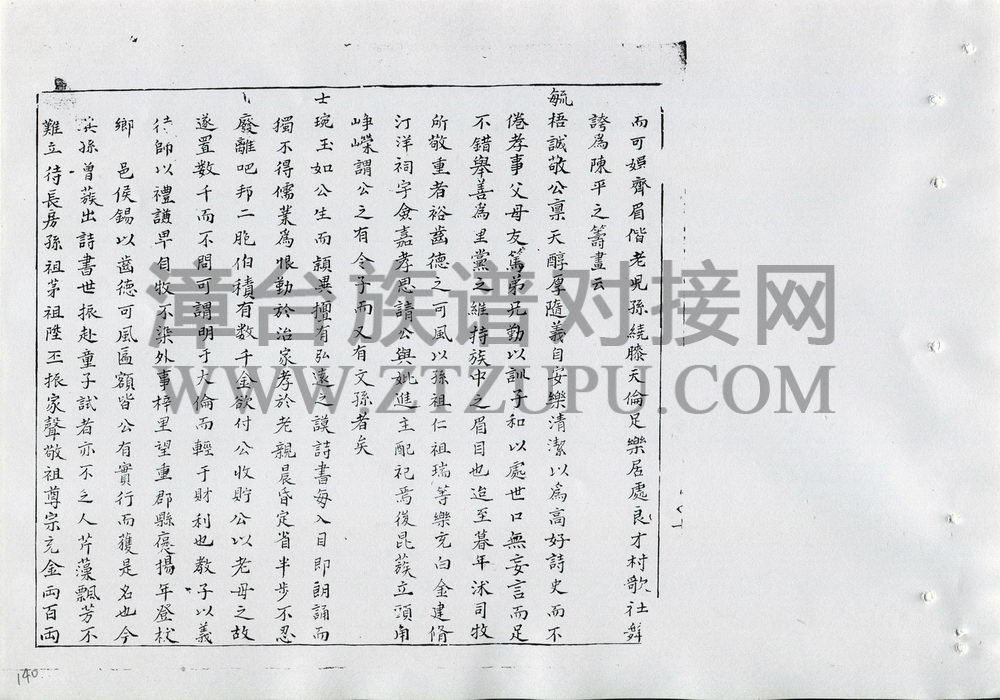 而可娯齊眉偕老児孫繞膝天倫足樂居處良才村歌社舞
誇為陳平之籌畫云
毓梧誠敬公禀天醇厚隨義自安樂清潔以為高好詩史而不
倦孝事父母友篤弟兄勤以訓子和以處世口無妄言而足
不錯舉善為里黨之維持族中之眉目也迨至暮年沭司牧
所敬重者裕齒德之可風以孫祖仁祖瑞等樂充白金建脩
汀洋祠宇僉嘉孝思請公與妣進主配祀焉後昆蔟立頭角
崢嶸謂公之有令子而又有文孫者矣
士琬玉如公生而頴異擅有弘遠之謨詩書每入目即朗誦而
獨不得儒業為恨勤於治家孝於老親晨昏定省半步不忍
廢離吧邦二胞伯積有数千金欲付公收貯公以老母之故
遂置数千而不問可謂明于大倫而輕于財利也教子以義
待師以禮謙卑自牧不染外事梓里望重郡縣褒揚年登杖
鄉 邑侯錫以齒德可風匾額皆公有實行而獲是名也今
孫曾蔟出詩書世振赴童子試者亦不乏人芹藻飄芳不
難立待長房孫祖茅祖陞丕振家聲敬祖尊宗充金両百両
140
漳台族谱对接网
WWW.ZTZUPU.COM